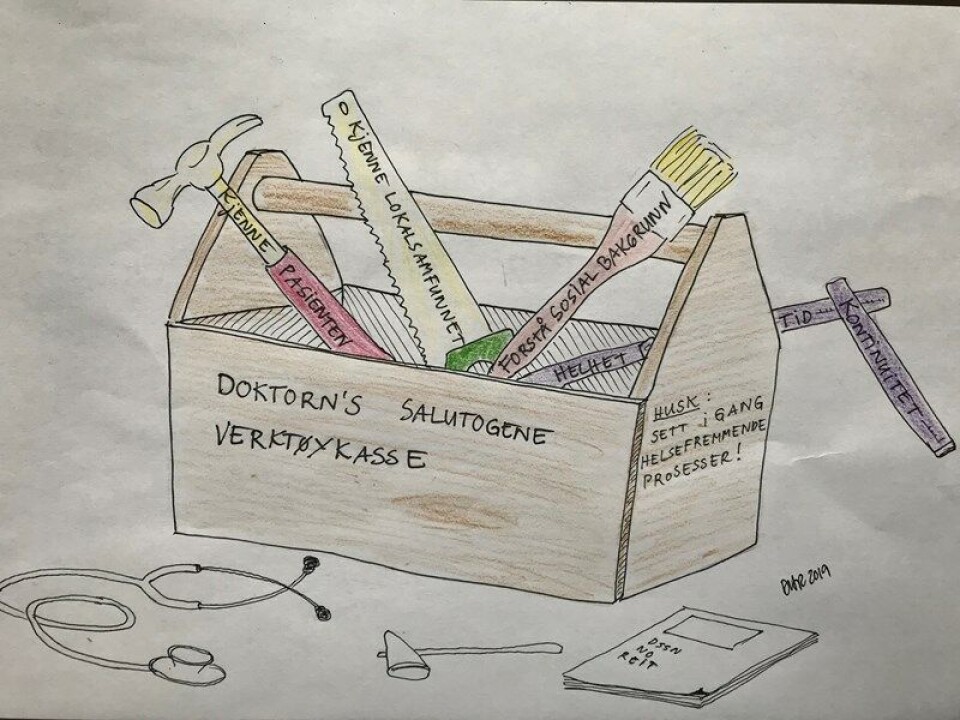 KJENNE
PASIENTEN
KJENNE LOKALSAMFUNNET
FORSTÅ SOSIAL BAKGRUNN
HELHET
TID
KONTINUITET
DOKTORN'S SALUTOGENE
VERKTØYKASSE
HUSK:
SETT i GANG
HELSEFREMMENDE
PROSESSER!
2019
NO